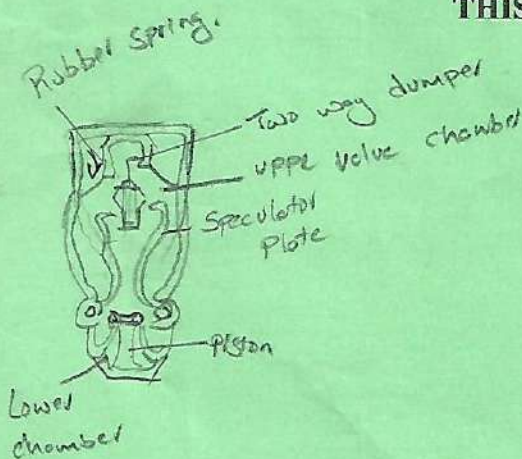 THIS
Rubber spring.
Two way dumper
uppe valve chamber
Speculator
Plate
Piston
Lower
chamber